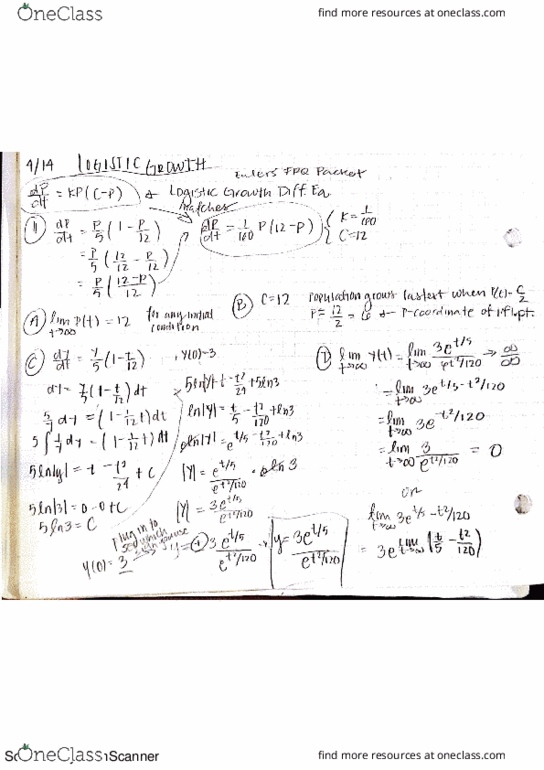 OneClass
find more resources at oneclass.com
4/14 LOGISTIC GROWTH
Euler's FDQ Packet
dP/dt = KP(C-P) Logistic Growth Diff Eq.
matches
11 dP/dt = P/5 (1 - P/12)
dP/dt = 1/160 P(12-P) { K = 1/160
C = 12
= P/5 (12/12 - P/12)
= P/5 (12-P/12)
A lim t→∞ P(t) = 12 for any initial condition
B C=12 Population grows fastest when P(t) = C/2
P = 12/2 = 6 P-coordinate of inf. pt.
C dy/dt = y/5 (1 - t/12), y(0)=3
dy = y/5 (1 - t/12) dt
5/y dy = (1 - 1/12 t) dt
5 ∫ 1/y dy = (1 - 1/12 t) dt
5 ln|y| = t - t²/24 + C
5 ln|3| = 0 - 0 + C
5 ln 3 = C
y(0) = 3
Plug in to see which
5 ln|y| = t - t²/24 + 5 ln 3
ln|y| = t/5 - t²/120 + ln 3
e ln|y| = e t/5 - t²/120 + ln 3
|y| = e^t/5 / e^t²/120 · e ln 3
|y| = 3e^t/5 / e^t²/120
y = + 3 e^t/5 / e^t²/120
y = 3e^t/5 / e^t²/120
D lim t→∞ y(t) = lim t→∞ 3e^t/5 / e^t²/120 → ∞/∞
= lim t→∞ 3e^t/5 - t²/120
= lim t→∞ 3e^-t²/120
= lim t→∞ 3 / e^t²/120 = 0
or
lim t→∞ 3e^t/5 - t²/120
= 3e^lim t→∞ (t/5 - t²/120)
OneClass
Scanner
find more resources at oneclass.com